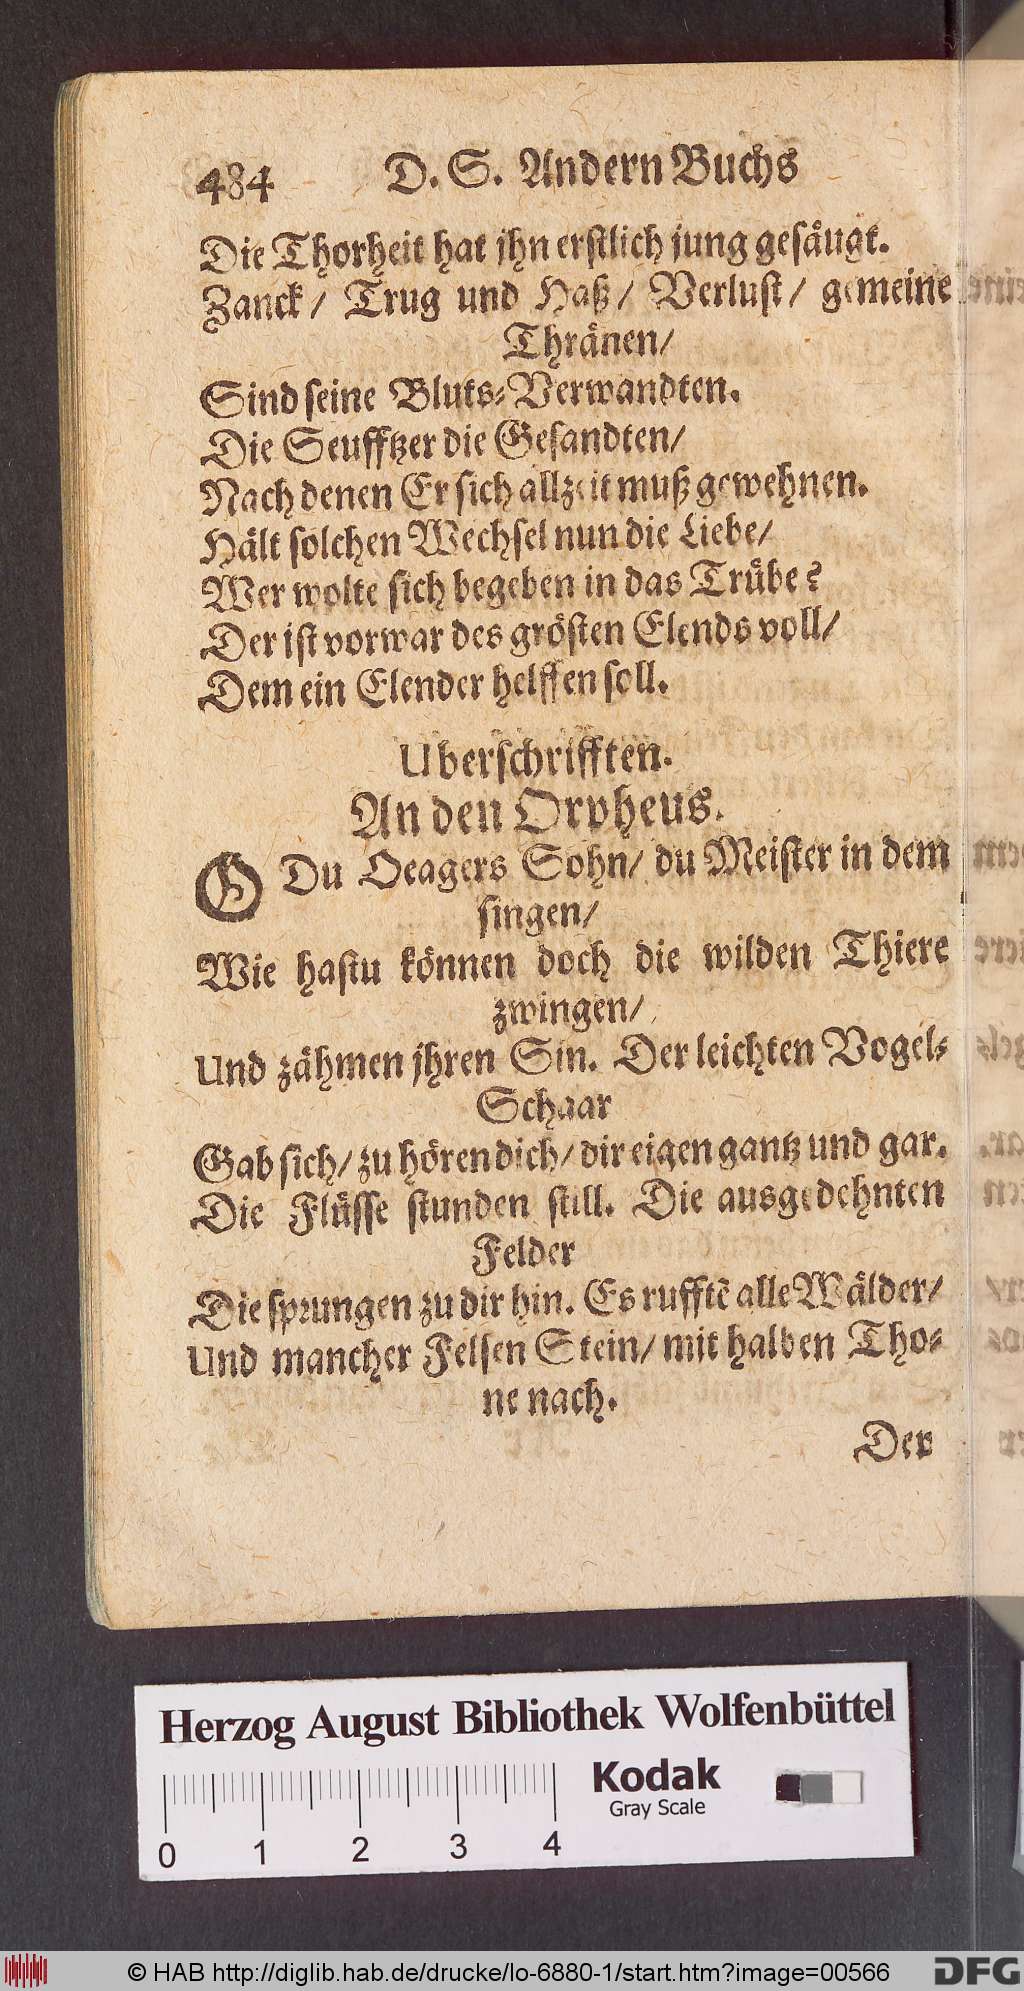 484 D. S. Andern Buchs
Die Thorheit hat jhn erstlich jung gesäugt.
Zanck/ Trug und Haß/ Verlust/ gemeine
Thränen/
Sind seine Bluts-Verwandten.
Die Seufftzer die Gesandten/
Nach denen Er sich allzeit muß gewehnen.
Hält solchen Wechsel nun die Liebe/
Wer wolte sich begeben in das Trübe?
Der ist vorwar des grösten Elends voll/
Dem ein Elender helffen soll.
Uberschrifften.
An den Orpheus.
O Du Oeagers Sohn/ du Meister in dem
singen/
Wie hastu können doch die wilden Thiere
zwingen/
Und zähmen jhren Sin. Der leichten Vogel-
Schaar
Gab sich/ zu hören dich/ dir eigen gantz und gar.
Die Flüsse stunden still. Die ausgedehnten
Felder
Die sprungen zu dir hin. Es rufftẽ alle Wälder/
Und mancher Felsen Stein/ mit halben Tho-
ne nach.
Der
Herzog August Bibliothek Wolfenbüttel
Kodak
Gray Scale
0 1 2 3 4
© HAB http://diglib.hab.de/drucke/lo-6880-1/start.htm?image=00566
DFG